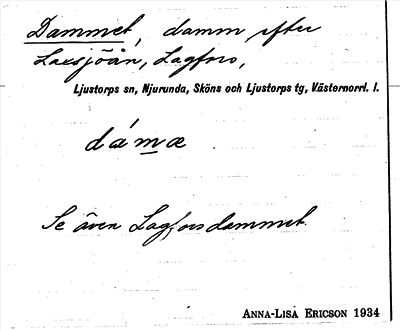 Dammet, damm efter
Laxsjöån, Lagfors,
Ljustorps sn, Njurunda, Sköns och Ljustorps tg, Västernorrl. l.
dámæ
Se även Lagforsdammet.
ANNA-LISA ERICSON 1934